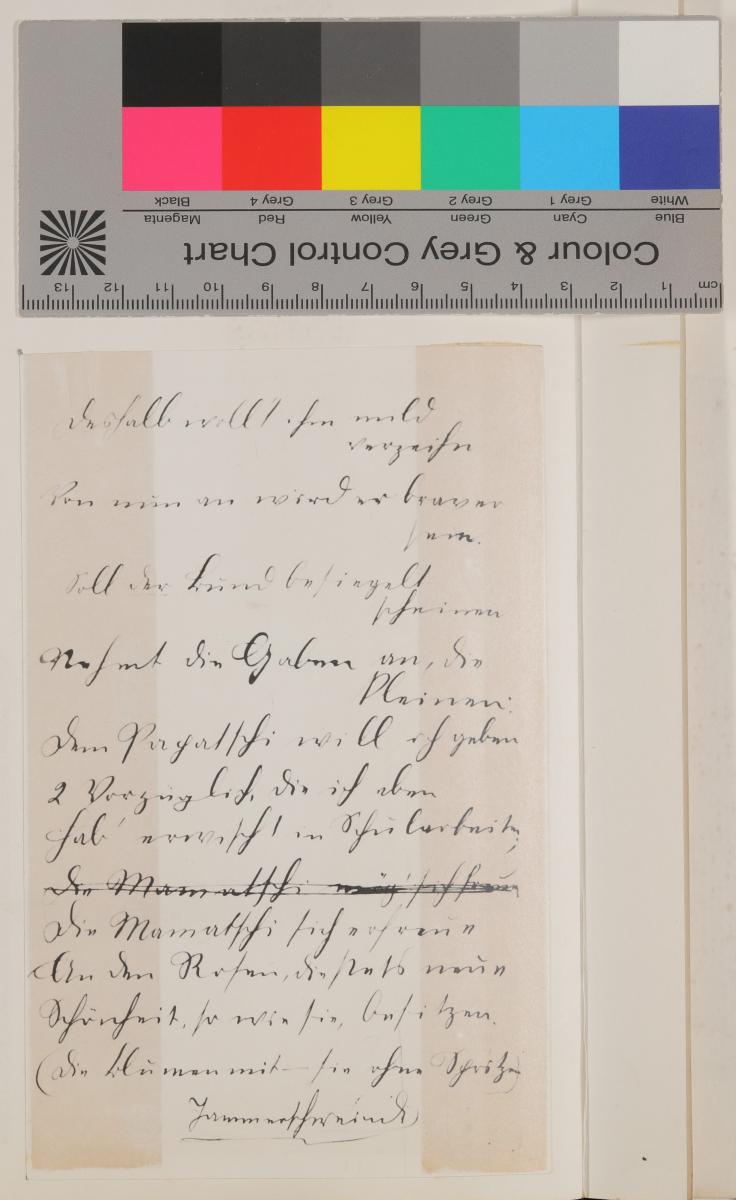 Black Grey 4 Grey 3 Grey 2 Grey 1 White
Magenta Red Yellow Green Cyan Blue
Colour & Grey Control Chart
13 12 11 10 9 8 7 6 5 4 3 2 1 cm
Deshalb wollt ihm mild
verzeihn
Von nun an wird er braver
sein.
Soll der Bund besiegelt
scheinen
Nehmt die Gaben an, die
kleinen:
Dem Papatschi will ich geben
2 Vorzüglich, die ich eben
Hab' erwischt in Schularbeiten;
Die Mamatschi mög' sich freun
Die Mamatschi sich erfreue
An den Rosen, die stets neue
Schönheit, so wie sie, besitzen.
(Die Blumen mit – sie ohne Spritzen)